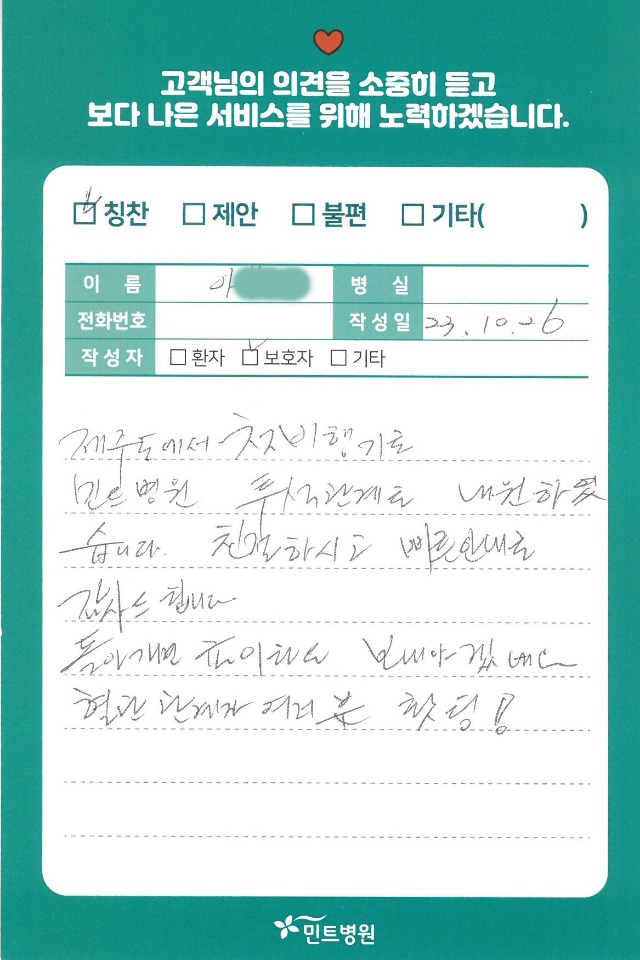 고객님의 의견을 소중히 듣고
보다 나은 서비스를 위해 노력하겠습니다.
칭찬 제안 불편 기타( )
이 름 병 실
전화번호 작성일 23.10.26
작성자 환자 보호자 기타
제주도에서 첫비행기로
민트병원 투석관계로 내원하였
습니다. 친절하시고 빠른안내로
감사드립니다
돌아가면 보내야 겠네요
혈관 관계자 여러분 홧팅!
민트병원